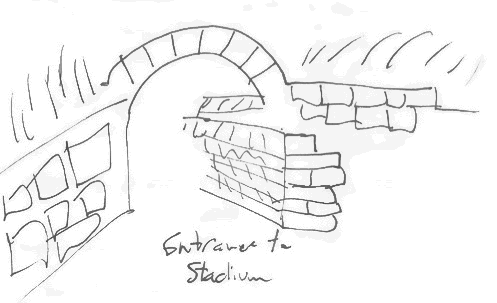 Entrance to
Stadium